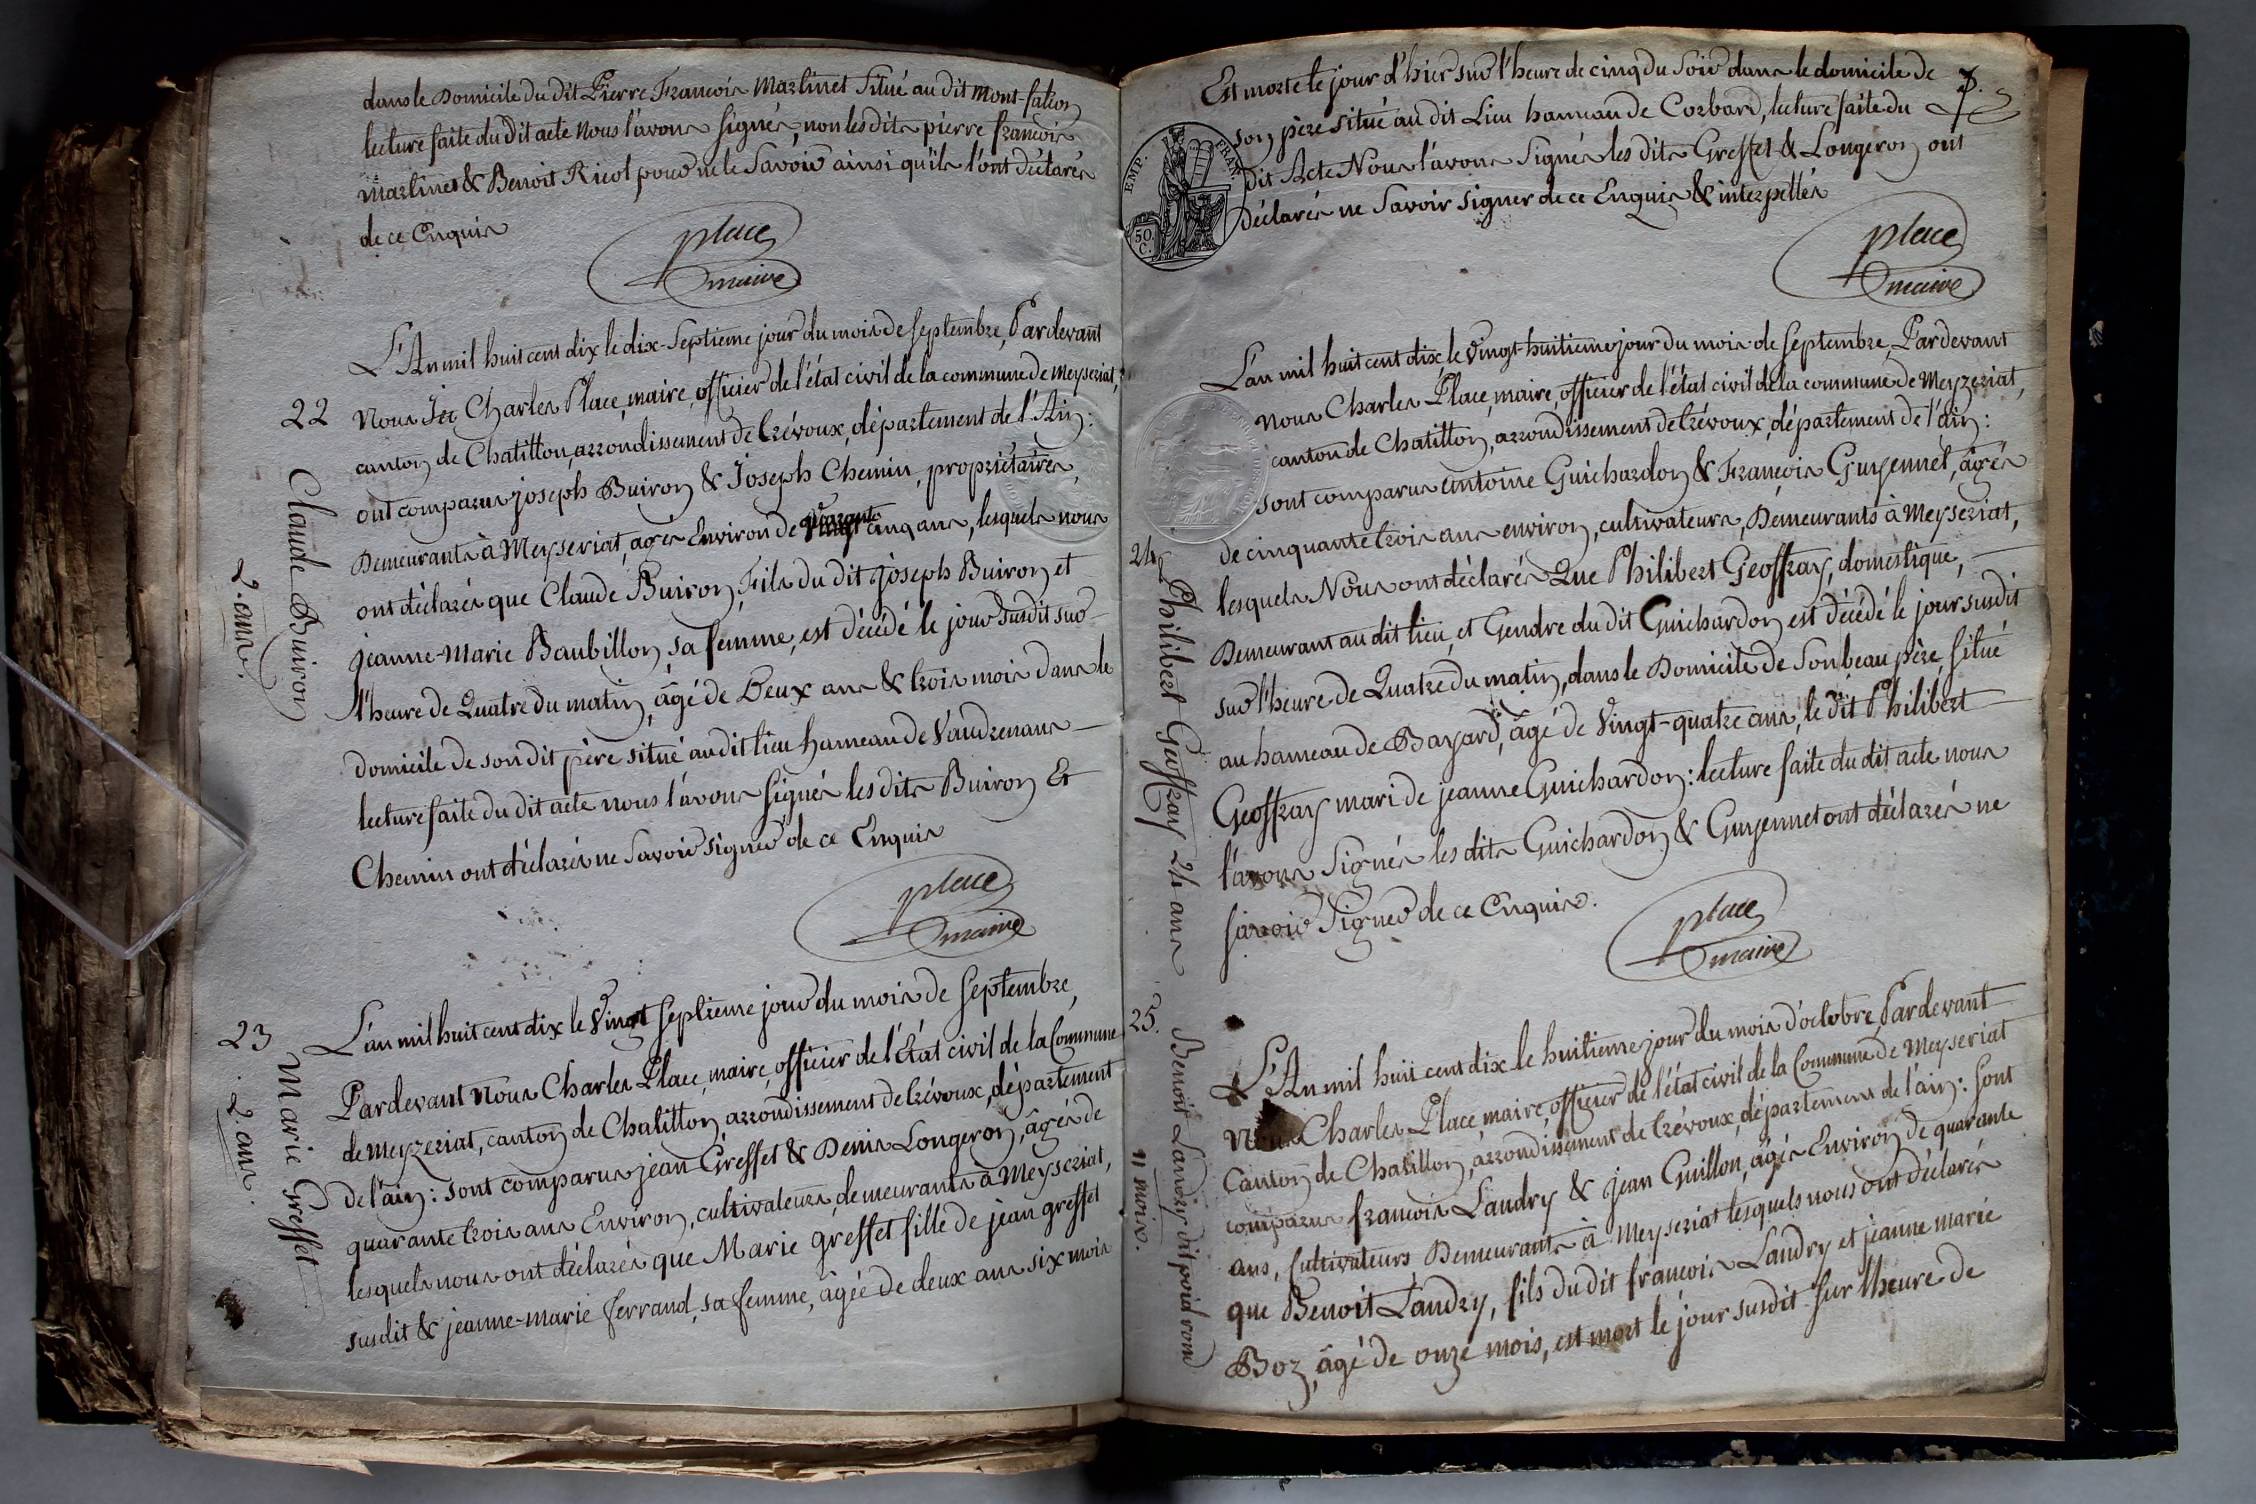 dans le Domicile du dit Pierre François Martinet Situé au dit Mont-falcon
lecture faite du Dit acte Nous l'avons Signés, non les dits pierre françois
Martinet & Benoit Ricol pour ne le Savoir ainsi qu'ils l'ont déclarés
de ce Enquis
place
maire
22
Claude Buiron
2. ans.
L'An mil huit cent dix le dix-Septieme jour du mois de Septembre, Pardevant
Nous Charles Place, maire, officier de l'état civil de la commune de Meyseriat,
canton de Chatillon, arrondissement de Trévoux, département de l'Ain :
ont comparus joseph Buiron & Joseph Chemin, propriétaires,
Demeurants à Meyseriat, agés Environ de quarante cinq ans, lesquels nous
ont déclarés que Claude Buiron, Fils du dit joseph Buiron et
jeanne-Marie Baubillon, sa femme, est décédé le jour Susdit sur
l'heure de Quatre du matin, âgé de Deux ans & trois mois dans le
domicile de son dit père situé au dit lieu hameau de Vaudrenans
lecture faite du dit acte nous l'avons Signés les dits Buiron Et
Chemin ont déclarés ne Savoir signer de ce Enquis
place
maire
23
Marie Greffet
2. ans.
L'an mil huit cent dix le Vingt Septieme jour du mois de Septembre,
Pardevant Nous Charles Place, maire, officier de l'État civil de la Commune
de Meyzeriat, canton de Chatillon, arrondissement de Trévoux, département
de l'ain : sont comparus jean Greffet & Denis Longeron, âgés de
quarante trois ans Environ, cultivateurs, demeurants à Meyseriat,
lesquels nous ont déclarés que Marie greffet fille de jean greffet
susdit & jeanne-marie ferrand, sa femme, âgée de deux ans six mois
Est morte le jour d'hier sur l'heure de cinq du Soir dans le domicile de
son père situé au dit Lieu hameau de Corbard, lecture faite du
dit Acte Nous l'avons Signés les dits Greffet & Longeron ont
déclarés ne Savoir signer de ce Enquis & interpellés
EMP. FRAN.
50 C.
place
maire
24
Philibert Geoffray 24 ans
L'an mil huit cent dix, le Vingt-huitieme jour du mois de Septembre, Pardevant
nous Charles Place, maire, officier de l'état civil de la commune de Meyzeriat,
canton de Chatillon, arrondissement de Trévoux, département de l'ain :
sont comparus antoine Guichardon & François Guyennet, âgés
de cinquante trois ans environ, cultivateurs, Demeurants à Meyseriat,
lesquels Nous ont déclarés Que Philibert Geoffray, domestique,
Demeurant au dit lieu, et Gendre du dit Guichardon est décédé le jour susdit
sur l'heure de Quatre du matin, dans le Domicile de Son beau père, situé
au hameau de Bayard, âgé de Vingt-quatre ans, le dit Philibert
Geoffray mari de jeanne Guichardon : lecture faite du dit acte nous
l'avons Signés les dits Guichardon & Guyennet ont déclarés ne
savoir Signer de ce Enquis.
place
maire
25.
Benoit Landry dit poid rond
11 mois.
L'An mil huit cent dix le huitieme jour du mois d'octobre Pardevant
Nous Charles Place, maire, officier de l'état civil de la Commune de Meyseriat
Canton de Chatillon, arrondissement de Trévoux, département de l'ain : Sont
comparus françois Landry & jean Guillon, âgés Environ de quarante
ans, Cultivateurs Demeurants à Meyseriat lesquels nous ont déclarés
que Benoit Landry, fils du dit françois Landry et jeanne marie
Boz, âgé de onze mois, est mort le jour susdit sur lheure de